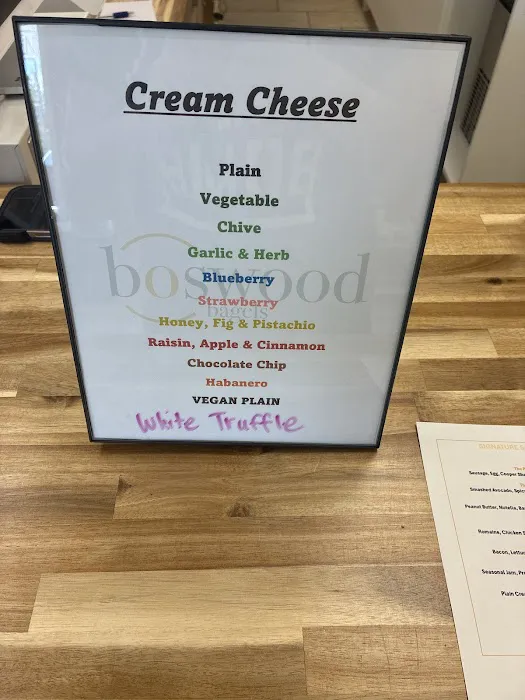 Cream Cheese
Plain
Vegetable
Chive
Garlic & Herb
Blueberry
Strawberry
Honey, Fig & Pistachio
Raisin, Apple & Cinnamon
Chocolate Chip
Habanero
VEGAN PLAIN
White Truffle
boswood
bagels
SIGNATURE
Sausage, Egg, Cooper
Smashed Avocado,
Peanut Butter, Nutella,
Romaine, Chicken
Bacon,
Seasonal Jam,
Plain